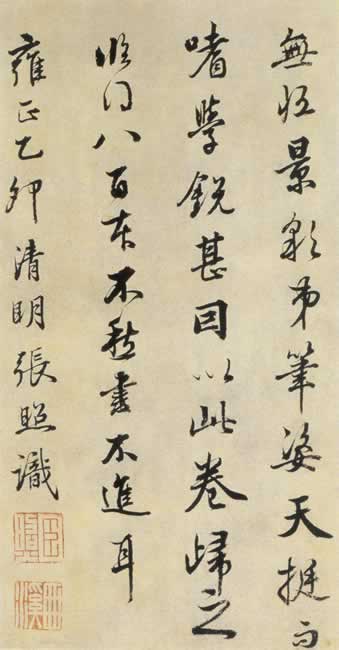 無景弟筆姿天挺而
嗜學銳甚因以此卷歸之
臨得八百本不愁書不進耳
雍正乙卯清明張照識